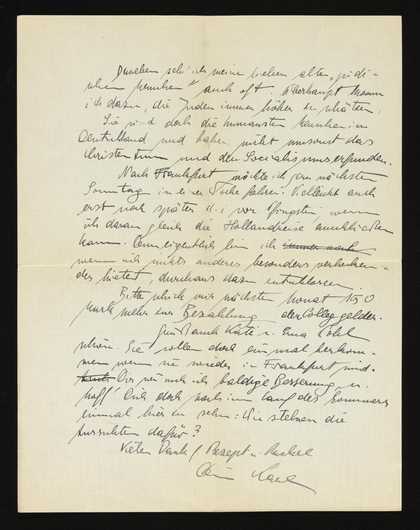 Daneben seh' ich meine lieben alten, jüdi-
schen auch oft. Überhaupt
ich dazu, die Juden immer höher zu schätzen.
Sie sind doch die humansten Menschen in
Deutschland und haben nicht umsonst das
Christentum und den Sozialismus erfunden.
Nach Frankfurt möchte ich am nächsten
Sonntag in einer Woche fahren. Vielleicht auch
erst noch später d.i. vor Pfingsten, wenn
ich daran gleich die Hollandreise anschließen
kann. Denn eigentlich bin ich immer noch
wenn mir nichts anderes besonders
des bietet, durchaus dazu entschlossen.
Bitte schick mir nächsten Monat 150
mark mehr zur Bezahlung der Colleggelder.
Grüß auch Käti u.
schön. Sie sollen doch einmal herkom-
men wenn sie wieder in Frankfurt sind.
wünsch ich baldige Besserung u.
hoff' Dich doch noch im Lauf des Sommers
einmal hier zu sehen: Wie stehen die
Aussichten dafür?
Vielen Dank f. Rezept u.
Dein